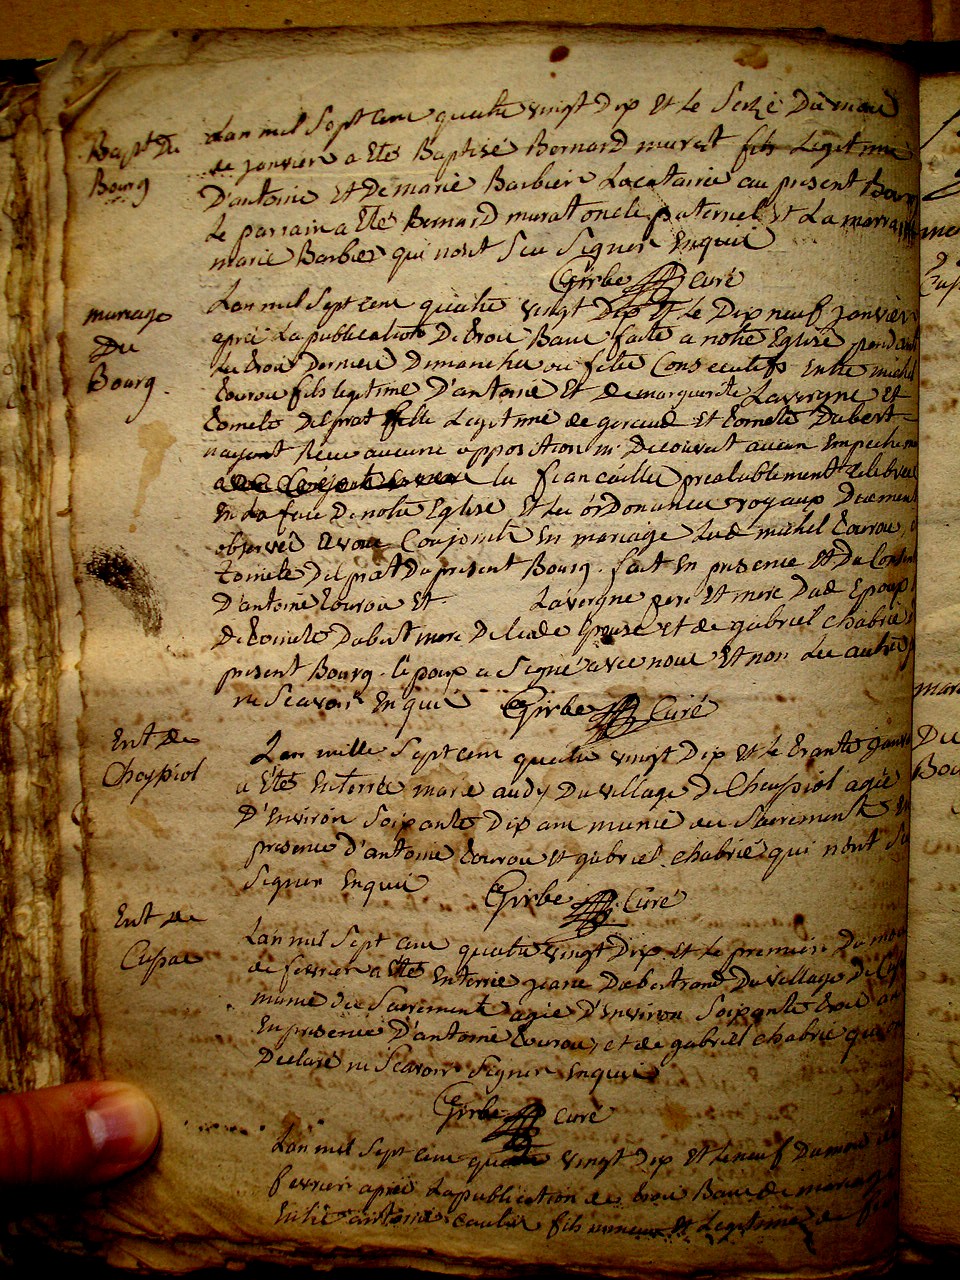 Bapt de
Bourg
Lan mil Sept cent quatre vingt Dix Et le Seize Du mois
de janvier a Etés Baptisé Bernard murat fils Legitime
D'antoine Et De marie Barbier Locatairié au present Bourg
Le parrain a Etés Bernard murat oncle paternel Et La marraine
marie Barbier qui n'ont Sçu Signer Enquis
Girbe Curé
mariage
Du
Bourg
Lan mil Sept cent quatre vingt Dix Et Le Dix neuf janvier
apres La publication De trois Banc faite a notre Eglise pendant
Les trois Dernier Dimanches ou fetes Consecutifs Entre michel
tourou fils legitime D'antoine Et de marguerite Lavergne Et
toinete Delprat fille Legitime de geraud Et toinete Dabert
nayant Receu aucune opposition ni Decouvert aucun Empecheme
les fiancailles prealablement Celebrées
En La face De notre Eglise Et Les ordonances royaux Duement
observés avons Conjoint En mariage Led michel tourou
toinete Delprat Du present Bourg. fait En presence Et Du Consent
D'antoine tourou Et Lavergne pere Et mere Dud Epoux
De toinete Dabert mere De lade Epouse Et de gabriel chabrié
present Bourg. l'epoux a Signé avec nous Et non Les autres p
ne Scavoir Enquis Girbe Curé
Ent de
Cheyssiol
Lan mille Sept cent quatre vingt Dix Et le trante janvier
a Etés Enterrée marie audy Du village De Cheyssiol agée
D'Environ Soixante Dix ans munie des Sacrements En
presence D'antoine tourou et gabriel chabrié qui n'ont Su
Signer Enquis Girbe Curé
Ent de
Cepac
Lan mil Sept cent quatre vingt Dix Et Le premier Du mois
de fevrier a Eté Enterrée jeane Dabertrand Du village De
munie des Sacrements agée D'Environ Soixante trois an
En presence D'antoine tourou, et de gabriel chabrié qui
Declaré ne Scavoir Signer Enquis
Girbe Curé
Lan mil Sept cent quatre vingt Dix Et Le neuf Du mois de
fevrier apres La publication de trois Banc de mariage
Entre antoine fils Et Legitime de